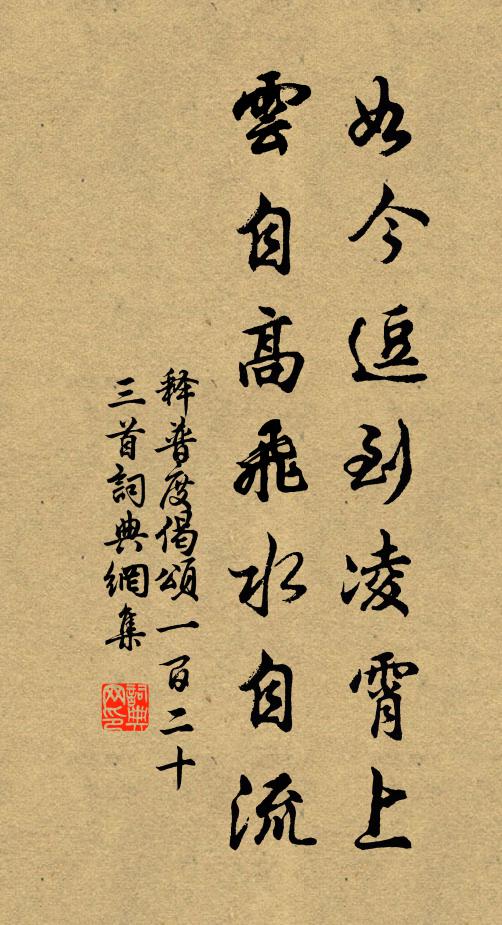 如今逗到凌霄上
雲自高飛水自流
释普度偈頌一百二十
三首詞典網集
詞典
网印